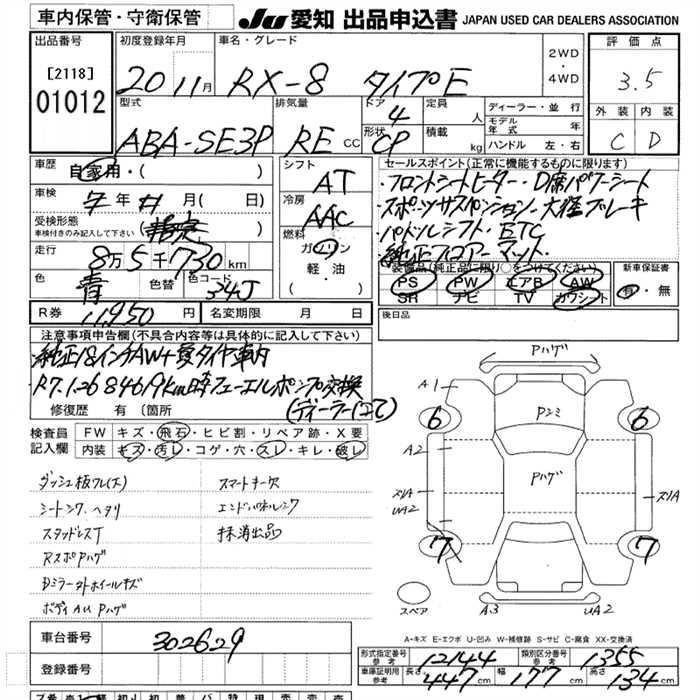 車内保管・守衛保管
JU 愛知 出品申込書 JAPAN USED CAR DEALERS ASSOCIATION
出品番号
[2118]
01012
初度登録年月
20 11月
車名・グレード
RX-8 タイプE
2WD
・
4WD
評価点
3.5
外装 内装
C D
型式
ABA-SE3P
排気量
RE CC
ドア
4
形状
CP
定員
人
積載
kg
ディーラー・並行
モデル年式 年
ハンドル 左・右
車歴
自家用・( )
車検
7年 月( 日)
受検形態
車検付きのみ記入して下さい
(指定)
走行
8万5千730km
色
青
色替
色コード
34J
シフト
AT
冷房
AAC
燃料
ガソリン
軽油
( )
セールスポイント(正常に機能するものに限ります)
・フロントシートヒーター・D席パワーシート
・スポーツサスペンション・大径ブレーキ
・パドルシフト・ETC
・純正フロアーマット・
装備品(純正品に限り○をつけてください)
PS PW エアB AW
SR ナビ TV カワシート
新車保証書
有・無
R券
11,950円
名変期限 月 日
後日品
注意事項申告欄(不具合内容等は具体的に記入して下さい)
・純正18インチAW+夏タイヤ車内
・R7.1.26 84619km時フューエルポンプ交換
(ディーラーにて)
修復歴 有〔箇所
検査員記入欄
FW キズ・飛石・ヒビ割・リペア跡・X要
内装 キズ・汚レ・コゲ・穴・スレ・キレ・破レ
ダッシュ板ワレ(大) スマートキー欠
シートシワ、ヘタリ エンドパネルシワ
スタッドレスT 抹消出品
RスポPハゲ
Dミラータトホイールキズ
ボディAU Pハゲ
Pハゲ
A1
6 6
Pンミ
A2
Pハゲ
スリA スリA
UA2
7 7
スペア
A3 UA2
A-キズ E-エクボ U-凹み W-補修跡 S-サビ C-腐食 XX-交換済
車台番号
302629
登録番号
型式指定番号
参考
12144
類別区分番号
参考
1355
車庫証明用
参考
長さ 447cm 幅 177cm 高さ 134cm